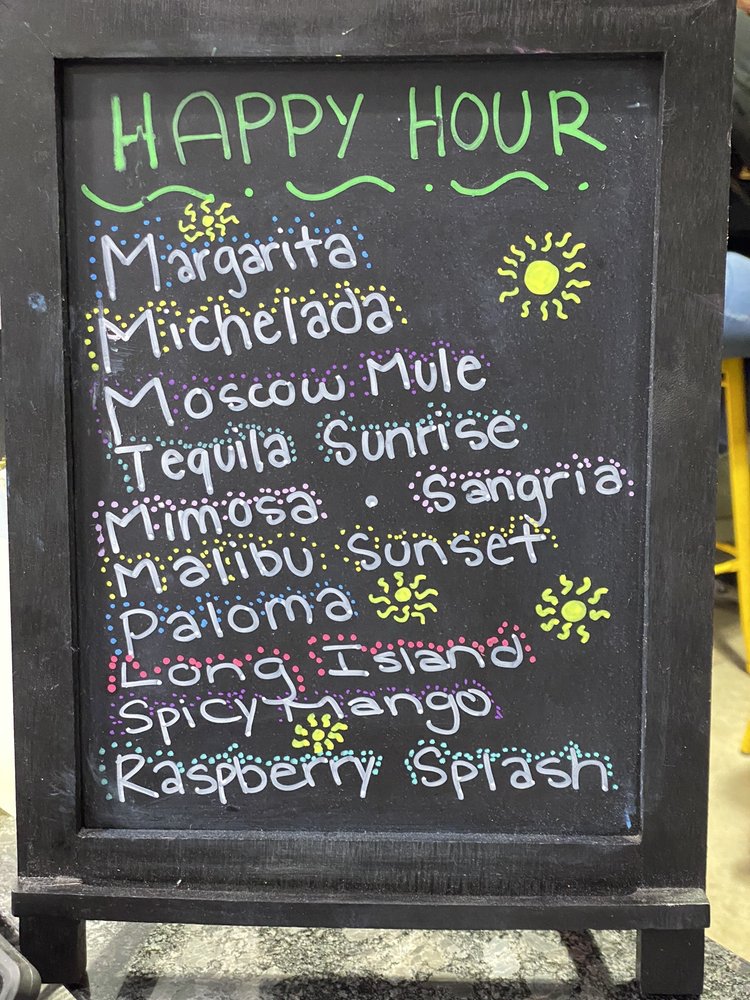 HAPPY HOUR
Margarita
Michelada
Moscow Mule
Tequila Sunrise
Mimosa · Sangria
Malibu Sunset
Paloma
Long Island
Spicy Mango
Raspberry Splash